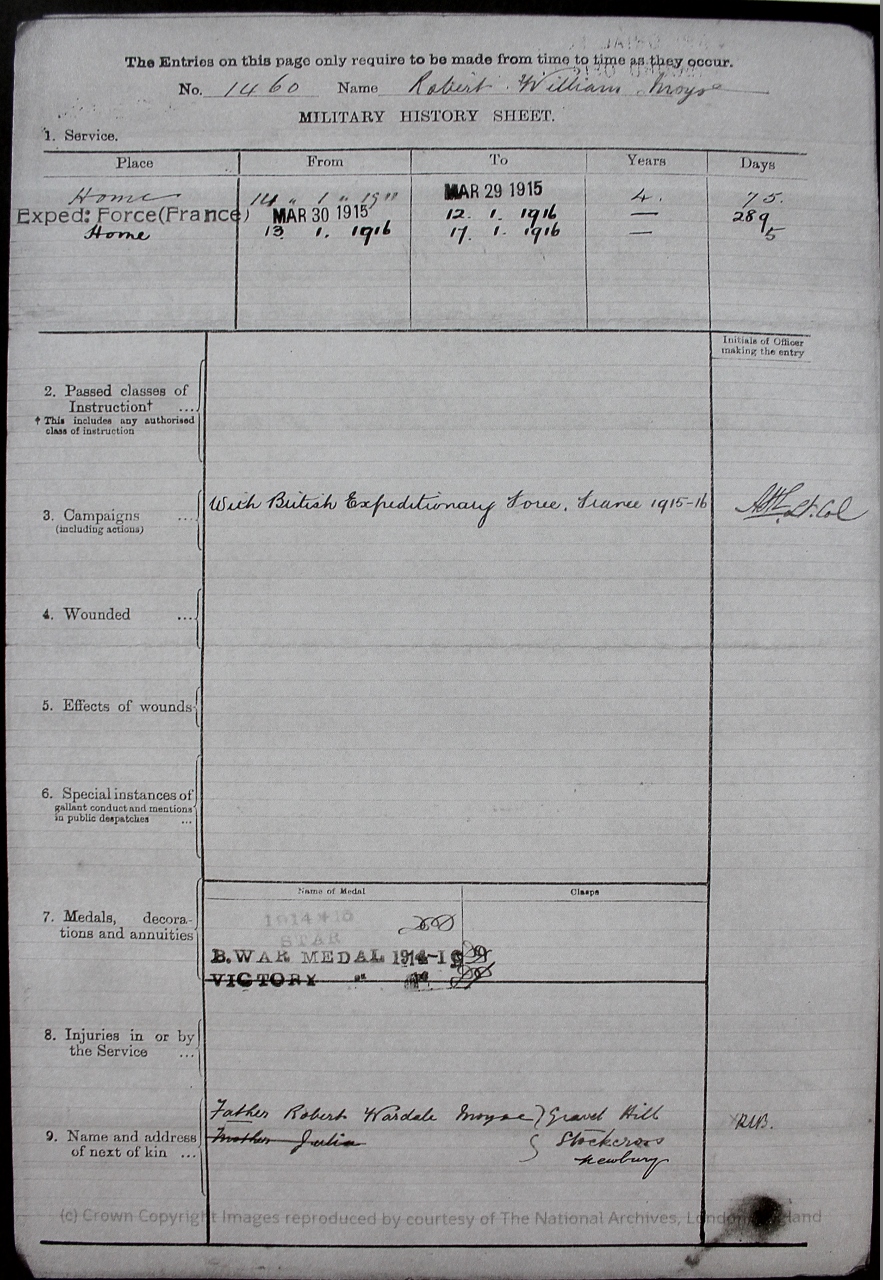 The Entries on this page only require to be made from time to time as they occur.
No. 1460 Name Robert William Moyse
MILITARY HISTORY SHEET.
1. Service.
Place From To Years Days
Home 14 " 1 " 19" MAR 29 1915 4. 75.
Exped: Force (France) MAR 30 1915 12. 1. 1916 — 289
Home 13. 1. 1916 17. 1. 1916 — 5
Initials of Officer
making the entry
2. Passed classes of
Instruction† ...
† This includes any authorised
class of instruction
3. Campaigns ...
(including actions)
With British Expeditionary Force, France 1915-16
Lt. Col
4. Wounded ...
5. Effects of wounds
6. Special instances of
gallant conduct and mentions
in public despatches ...
Name of Medal Clasps
7. Medals, decora-
tions and annuities
1914*15
STAR
B. WAR MEDAL 1914-19
VICTORY " "
8. Injuries in or by
the Service ...
9. Name and address
of next of kin ...
Father Robert Wardale Moyse } Gravel Hill
Mother Julia Stockcross
Newbury
(c) Crown Copyright Images reproduced by courtesy of The National Archives, London, England